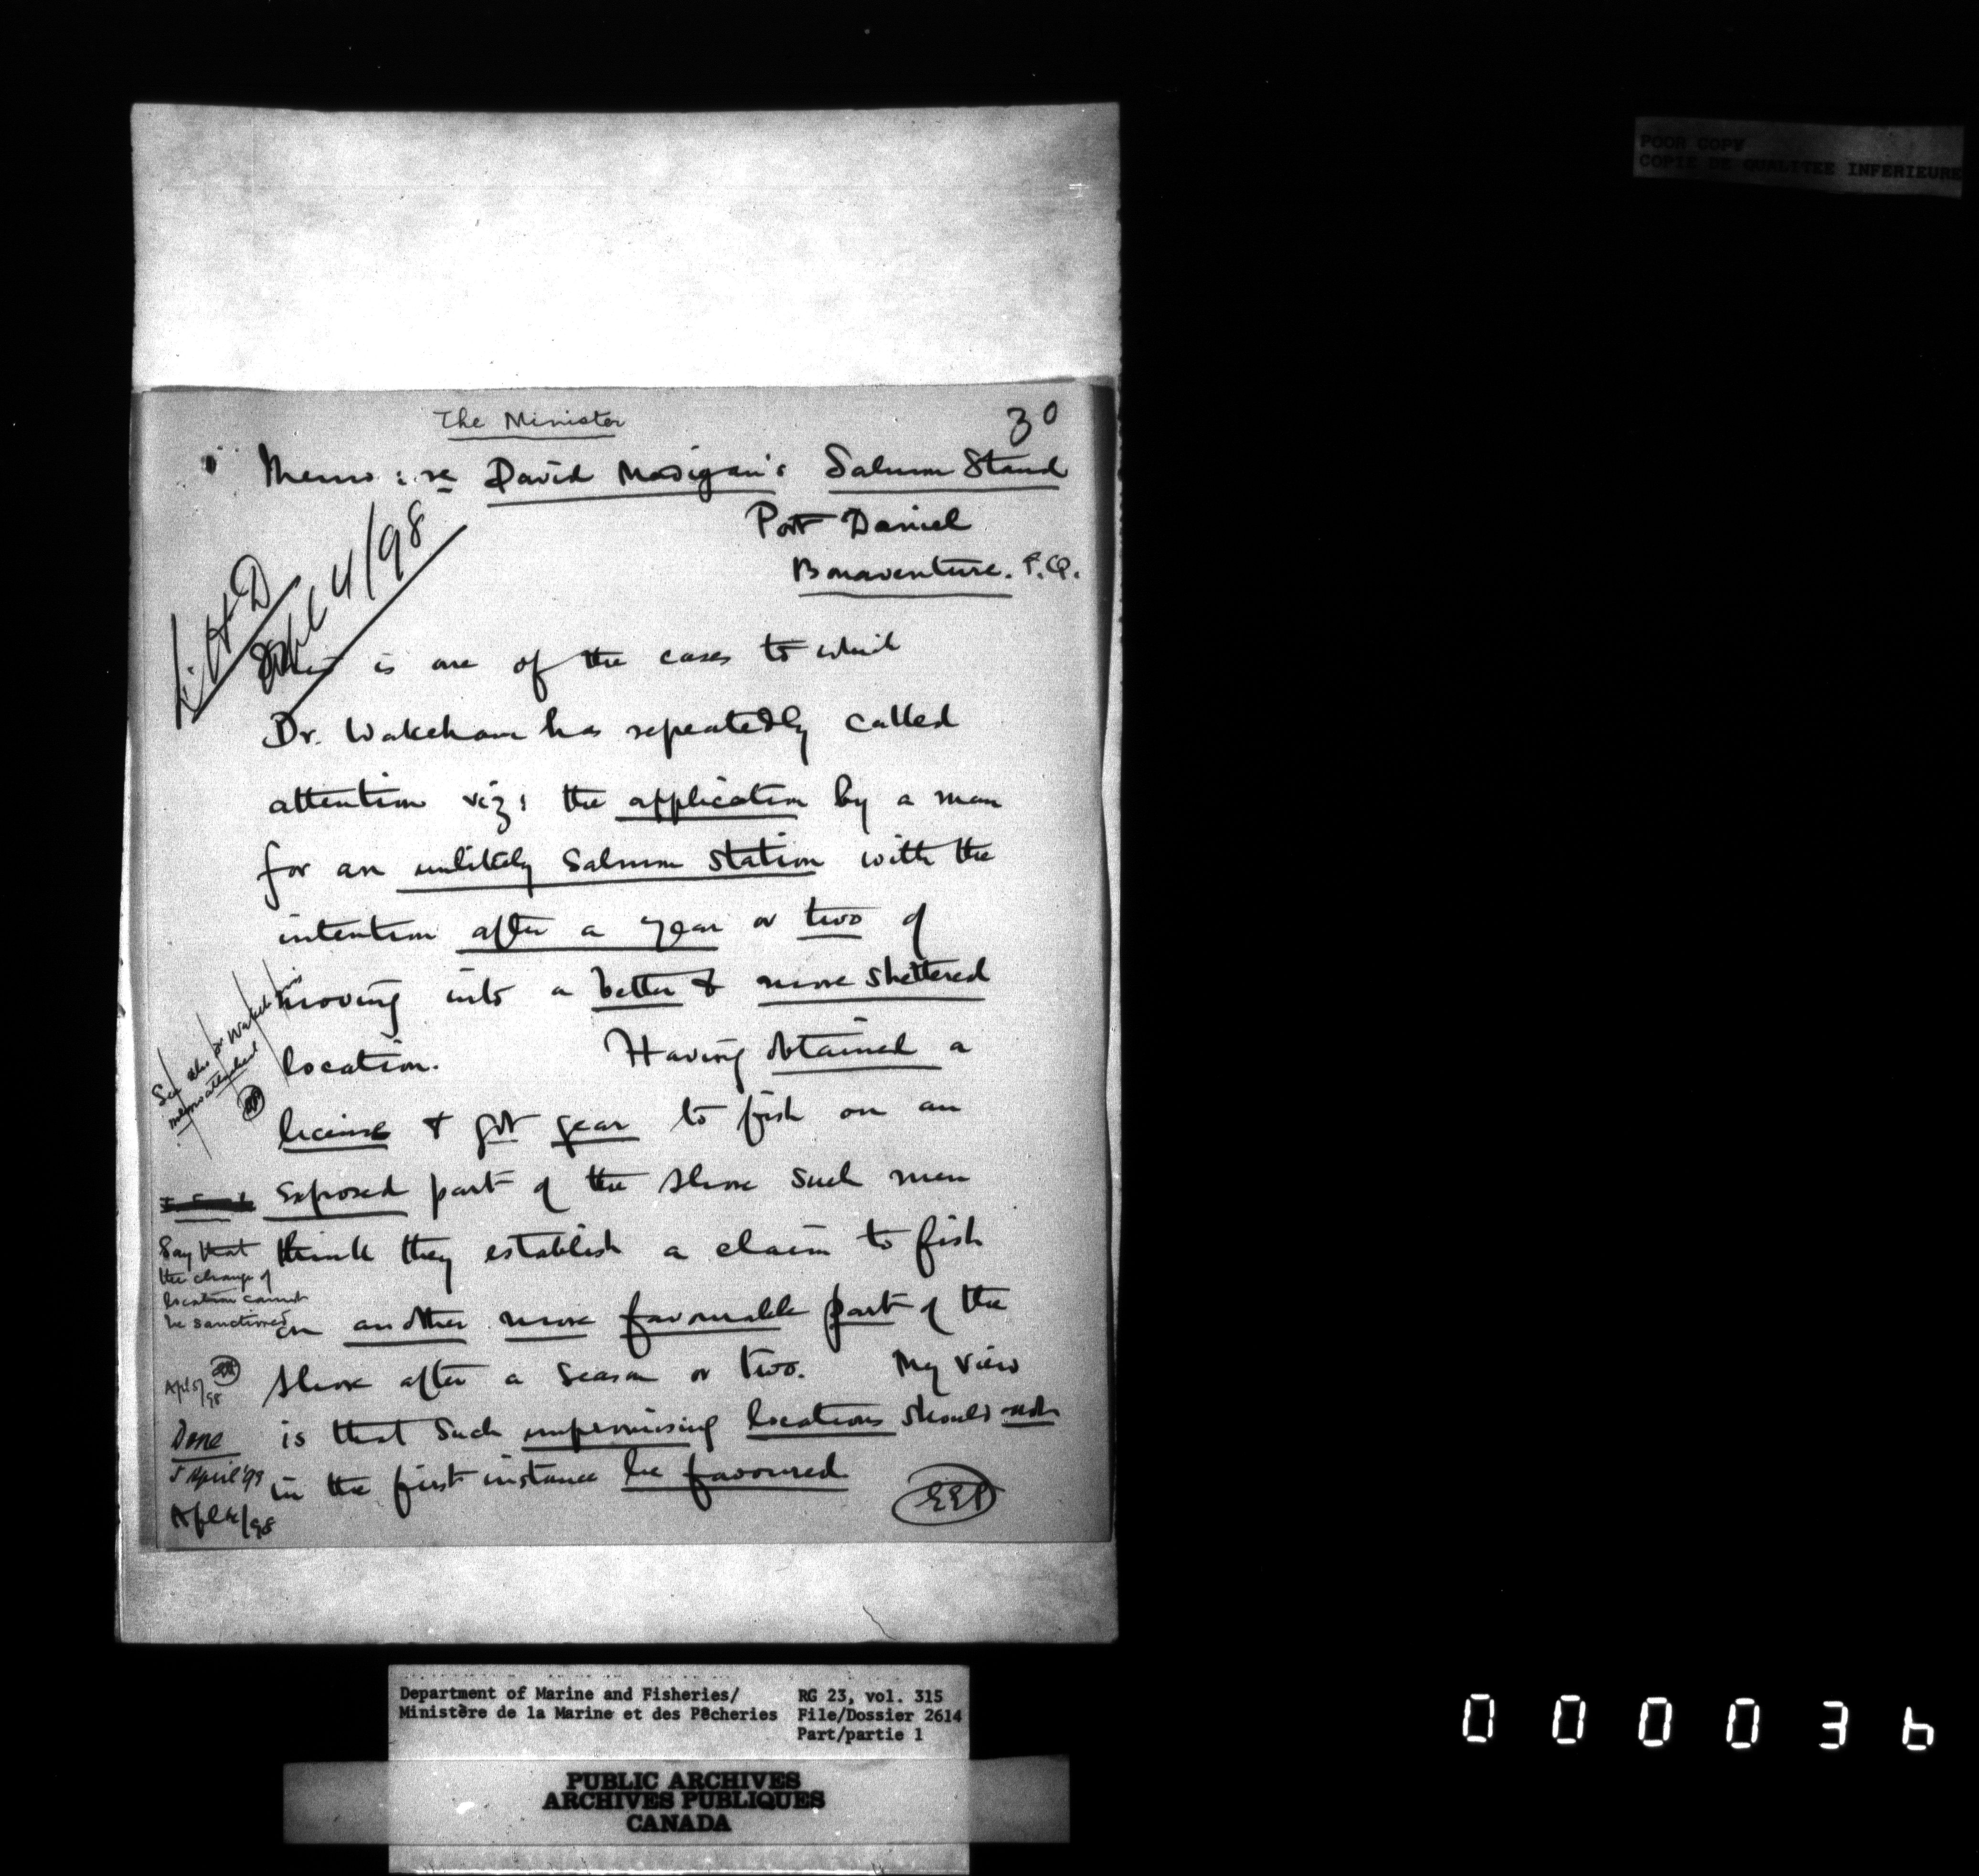 POOR COPY
COPIE DE QUALITEE INFERIEURE
The Minister
30
Memo: re David Madigan's Salmon Stand
Port Daniel
Bonaventure. P.Q.
L.H.D
April 4/98
This is one of the cases to which
Dr. Wakeham has repeatedly called
attention viz: the application by a man
for an unlikely Salmon station with the
intention after a year or two of
moving into a better & more sheltered
location. Having obtained a
license & got gear to fish on an
exposed part of the shore such men
think they establish a claim to fish
on another more favourable part of the
shore after a season or two. My view
is that such unpromising locations should not
in the first instance be favoured
EEP
See also Dr Wakeham's
memo attached
Say that
the change of
location cannot
be sanctioned
Apl 5/98
Done
5 April '98
Apl 4/98
Department of Marine and Fisheries/
Ministère de la Marine et des Pêcheries
RG 23, vol. 315
File/Dossier 2614
Part/partie 1
PUBLIC ARCHIVES
ARCHIVES PUBLIQUES
CANADA
000036